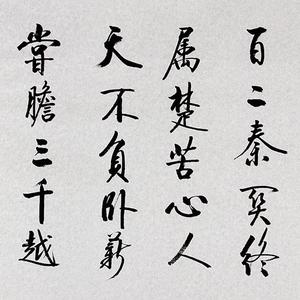 百二秦關終
属楚苦心人
天不負卧薪
嘗膽三千越